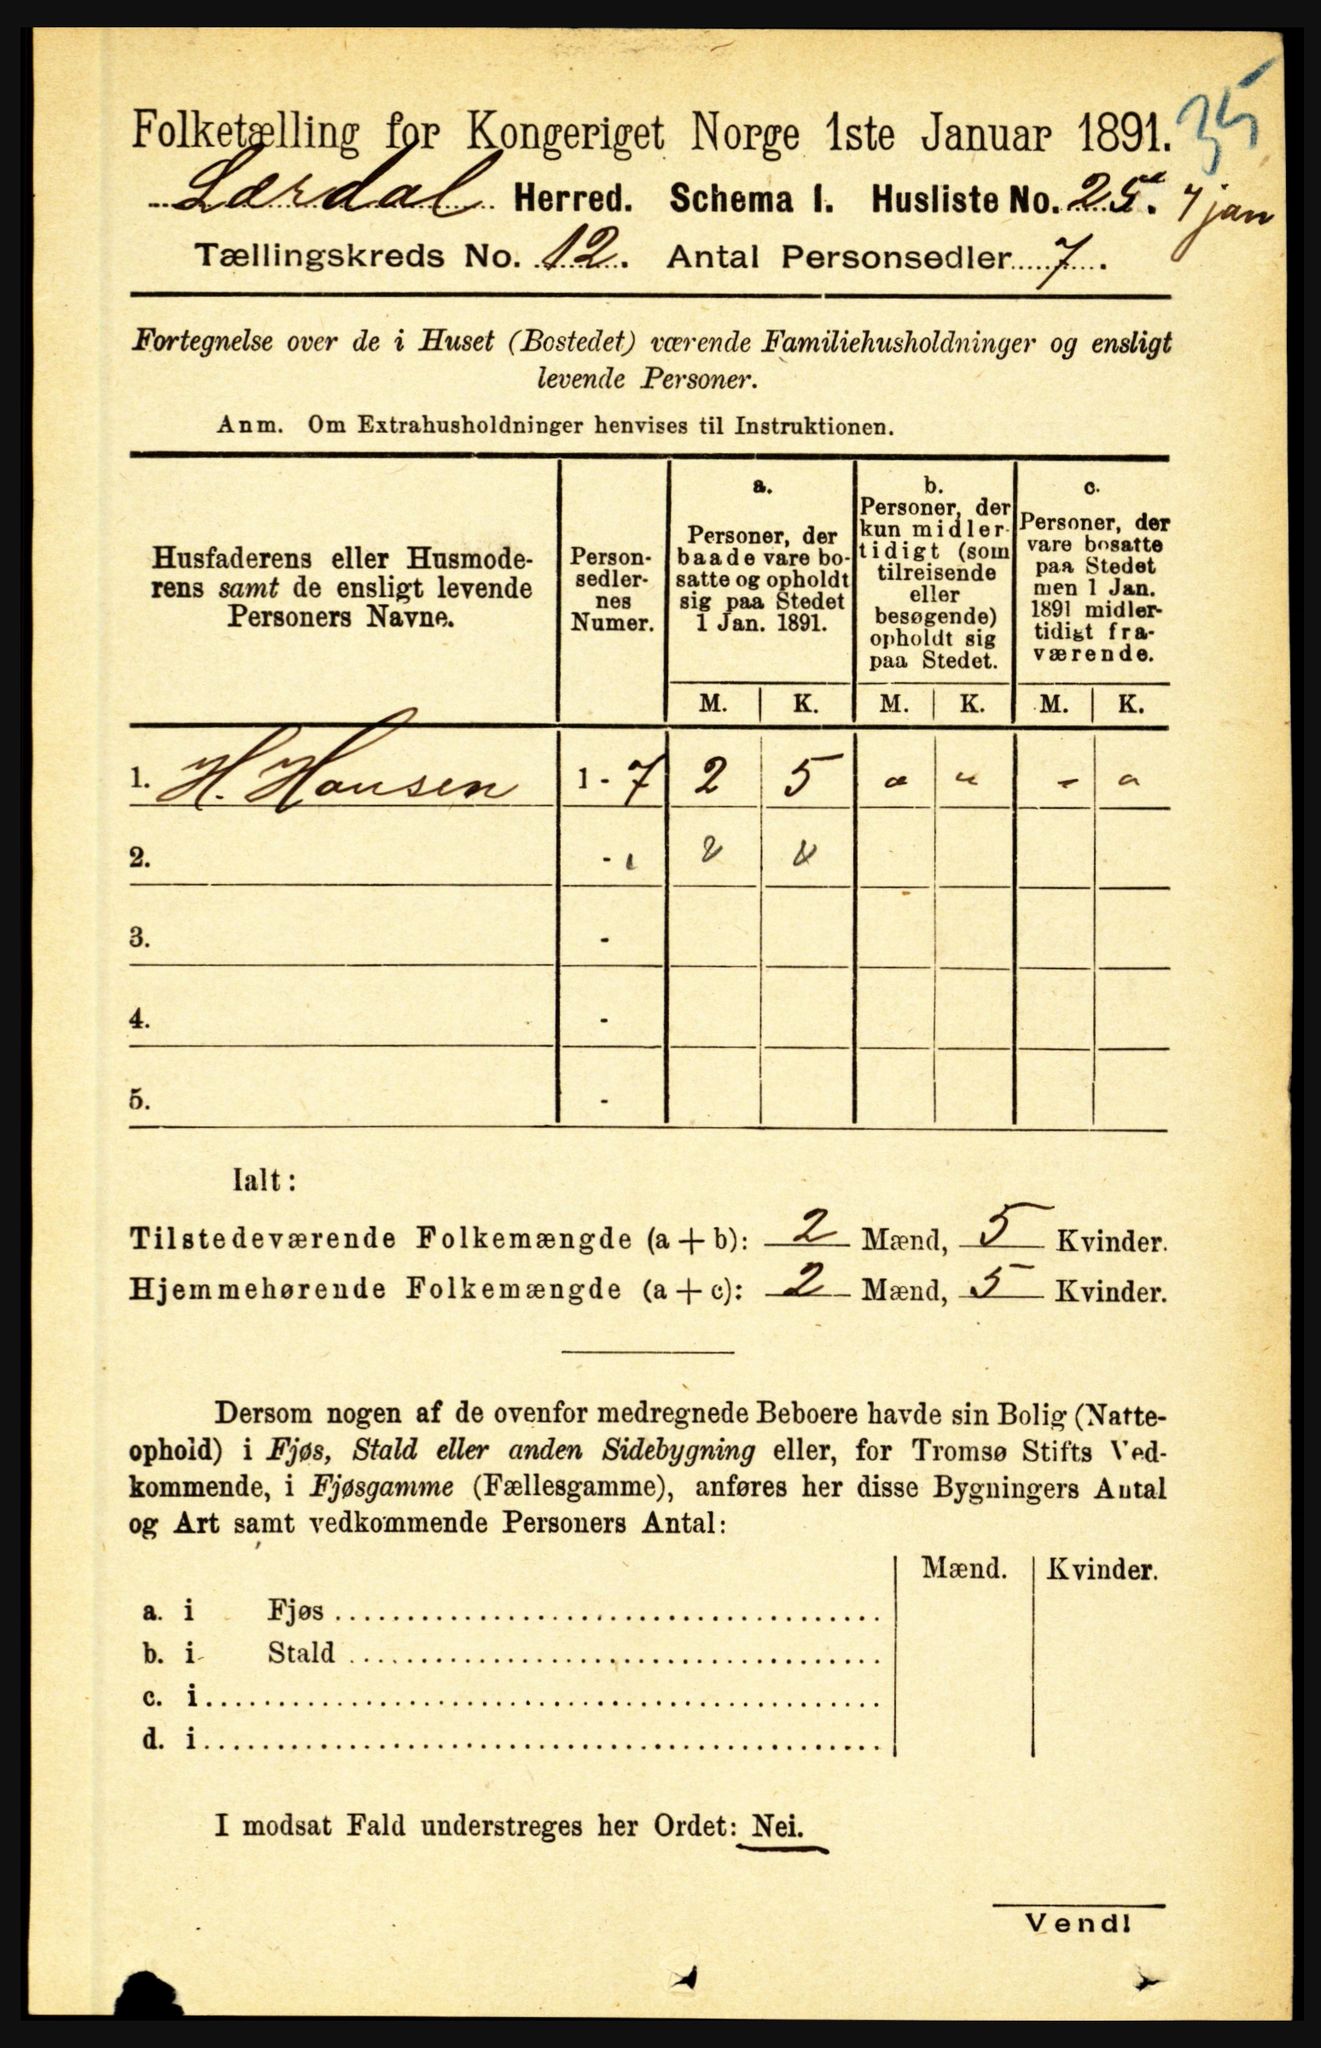 35
Folketælling for Kongeriget Norge 1ste Januar 1891.
Lærdal Herred. Schema I. Husliste No. 25. 7 jan
Tællingskreds No. 12. Antal Personsedler 7.
Fortegnelse over de i Huset (Bostedet) værende Familiehusholdninger og ensligt
levende Personer.
Anm. Om Extrahusholdninger henvises til Instruktionen.
Husfaderens eller Husmode-
rens samt de ensligt levende
Personers Navne.
Person-
sedler-
nes
Numer.
a.
Personer, der
baade vare bo-
satte og opholdt
sig paa Stedet
1 Jan. 1891.
b.
Personer, der
kun midler-
tidigt (som
tilreisende
eller
besøgende)
opholdt sig
paa Stedet.
c.
Personer, der
vare bosatte
paa Stedet
men 1 Jan.
1891 midler-
tidigt fra-
værende.
M. K. M. K. M. K.
1. H. Hansen 1 - 7 2 5 " " - "
2. -
3. -
4. -
5. -
Ialt:
Tilstedeværende Folkemængde (a + b): 2 Mænd, 5 Kvinder.
Hjemmehørende Folkemængde (a + c): 2 Mænd, 5 Kvinder.
Dersom nogen af de ovenfor medregnede Beboere havde sin Bolig (Natte-
ophold) i Fjøs, Stald eller anden Sidebygning eller, for Tromsø Stifts Ved-
kommende, i Fjøsgamme (Fællesgamme), anføres her disse Bygningers Antal
og Art samt vedkommende Personers Antal:
Mænd. Kvinder.
a. i Fjøs
b. i Stald
c. i
d. i
I modsat Fald understreges her Ordet: Nei.
Vend!